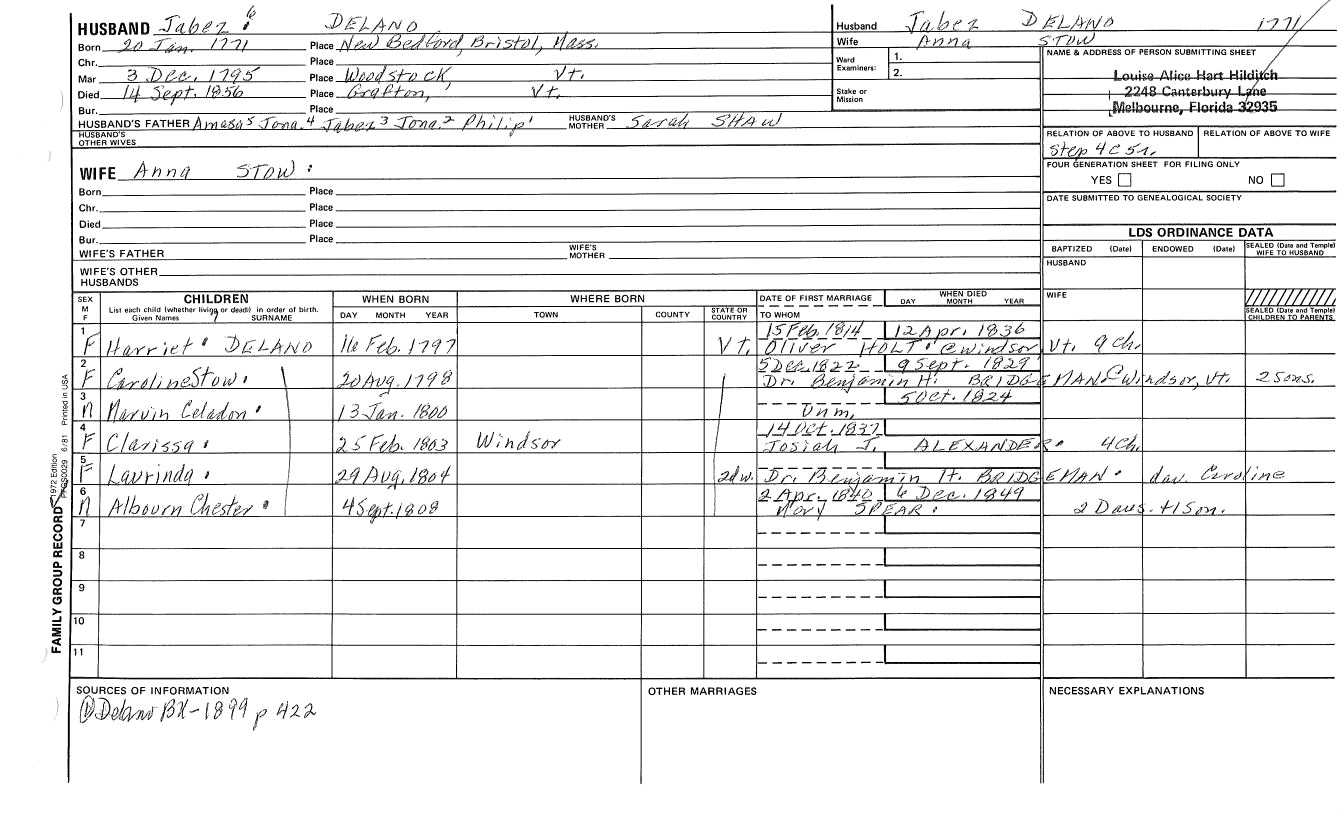 HUSBAND Jabez 6 DELANO
Born 20 Jan. 1771 Place New Bedford, Bristol, Mass.
Chr. Place
Mar 3 Dec. 1795 Place Woodstock, Vt.
Died 14 Sept. 1856 Place Grafton, Vt.
Bur. Place
HUSBAND'S FATHER Amasa 5 Jona. 4 Jabez 3 Jona. 2 Philip 1 HUSBAND'S MOTHER Sarah SHAW
HUSBAND'S OTHER WIVES
WIFE Anna STOW
Born Place
Chr. Place
Died Place
Bur. Place
WIFE'S FATHER WIFE'S MOTHER
WIFE'S OTHER HUSBANDS
Husband Jabez DELANO 1771
Wife Anna STOW
Ward Examiners: 1.
2.
Stake or Mission
NAME & ADDRESS OF PERSON SUBMITTING SHEET
Louise Alice Hart Hilditch
2248 Canterbury Lane
Melbourne, Florida 32935
RELATION OF ABOVE TO HUSBAND RELATION OF ABOVE TO WIFE
Step 4C5r.
FOUR GENERATION SHEET FOR FILING ONLY
YES NO
DATE SUBMITTED TO GENEALOGICAL SOCIETY
LDS ORDINANCE DATA
BAPTIZED (Date) ENDOWED (Date) SEALED (Date and Temple) WIFE TO HUSBAND
HUSBAND
WIFE
SEALED (Date and Temple) CHILDREN TO PARENTS
SEX M F CHILDREN WHEN BORN WHERE BORN DATE OF FIRST MARRIAGE WHEN DIED
List each child (whether living or dead) in order of birth. DAY MONTH YEAR TOWN COUNTY STATE OR COUNTRY TO WHOM DAY MONTH YEAR
Given Names 7 SURNAME
1 15 Feb. 1814 12 Apr. 1836
F Harriet DELANO 16 Feb. 1797 Vt. Oliver HOLT @ Windsor, Vt. 9 ch.
2 5 Dec. 1822 9 Sept. 1829
F Caroline Stow 20 Aug. 1798 Dr. Benjamin H. BRIDGEMAN @ Windsor, Vt. 2 sons.
3 5 Oct. 1824
M Marvin Celadon 13 Jan. 1800 Unm.
4 14 Oct. 1837
F Clarissa 25 Feb. 1803 Windsor Josiah J. ALEXANDER 4 ch.
5
F Laurinda 29 Aug. 1804 2d w. Dr. Benjamin H. BRIDGEMAN dau. Caroline
6 2 Apr. 1840 6 Dec. 1849
M Albourn Chester 4 Sept. 1808 Mary SPEAR 2 Daus. + 1 Son.
7
8
9
10
11
SOURCES OF INFORMATION OTHER MARRIAGES NECESSARY EXPLANATIONS
① Delano BK-1899 p 422
FAMILY GROUP RECORD
1972 Edition
PFGS0029 6/81 Printed in USA